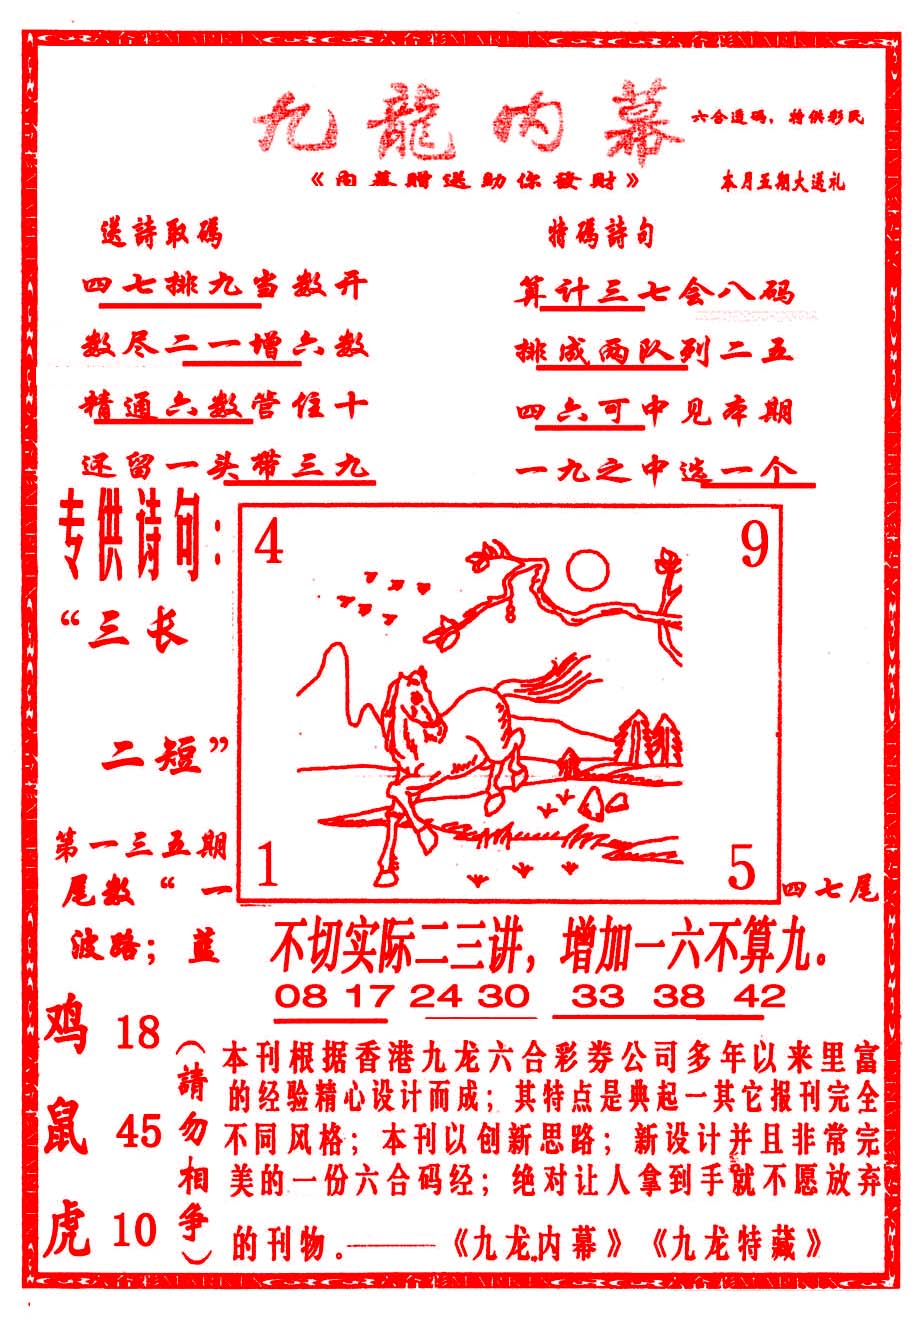 九龍内幕
六合透码，特供彩民
《内幕赠送助你發财》
本月五期大送礼
送詩取碼
四七排九当数开
数尽二一增六数
精通六数管住十
还留一头带三九
特碼詩句
算计三七会八码
排成两队列二五
四六可中见本期
一九之中选一个
专供诗句：
“三长
二短”
第一三五期
尾数“一
波路；蓝
4
9
1
5
四七尾
不切实际二三讲，增加一六不算九。
08 17 24 30 33 38 42
鸡 18
鼠 45
虎 10
（請勿相争）
本刊根据香港九龙六合彩劵公司多年以来里富
的经验精心设计而成；其特点是典起一其它报刊完全
不同风格；本刊以创新思路；新设计并且非常完
美的一份六合码经；绝对让人拿到手就不愿放弃
的刊物。———《九龙内幕》《九龙特藏》